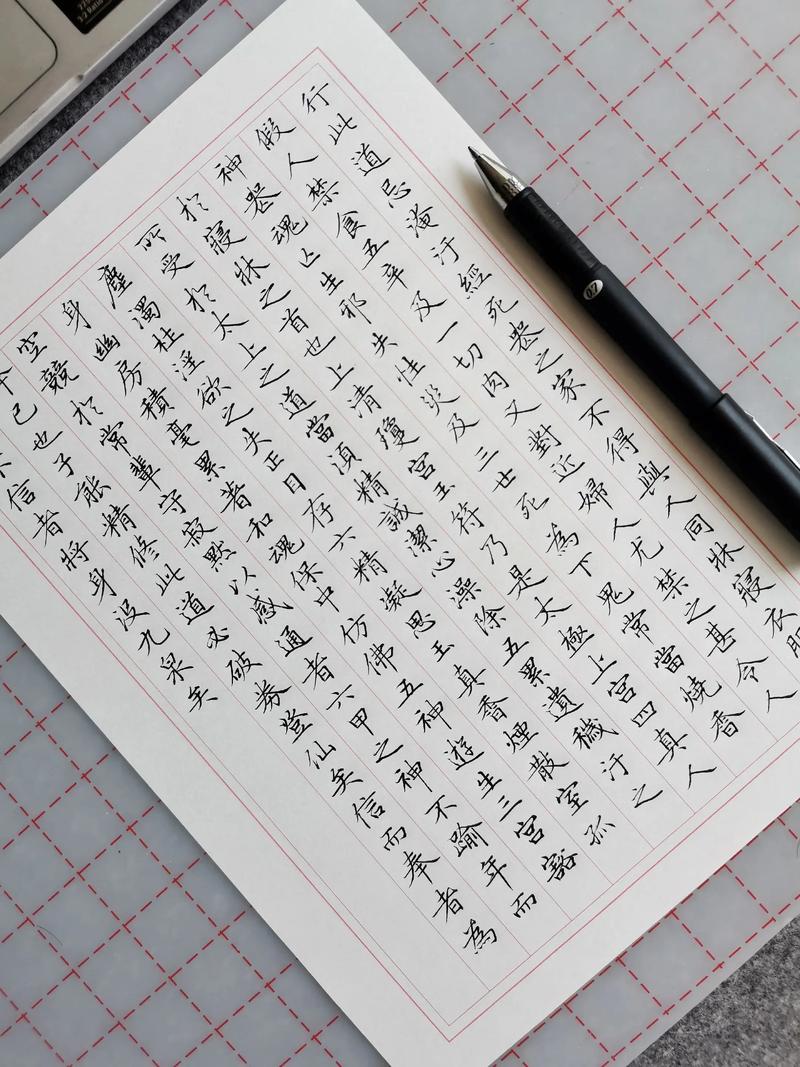 行此道忌淹汙經死喪之家不得與人同牀寢衣
假人禁食五辛及一切肉又對近婦人尤禁之甚令人
神喪魂亡生邪失性災及三世死為下鬼常當燒香
於寢牀之首也上清瓊宮玉符乃是太極上宮四真人
所受於太上之道當須精誠潔心澡除五累遺穢汙之
塵濁杜淫欲之失正目存六精凝思玉真香煙散室孤
身幽房積毫累著和魂保中仿佛五神遊生三宮豁
空競於常輩守寂默以感通者六甲之神不踰年而
已也子能精修此道必破券登仙矣信而奉者為
信者將身沒九泉矣
07